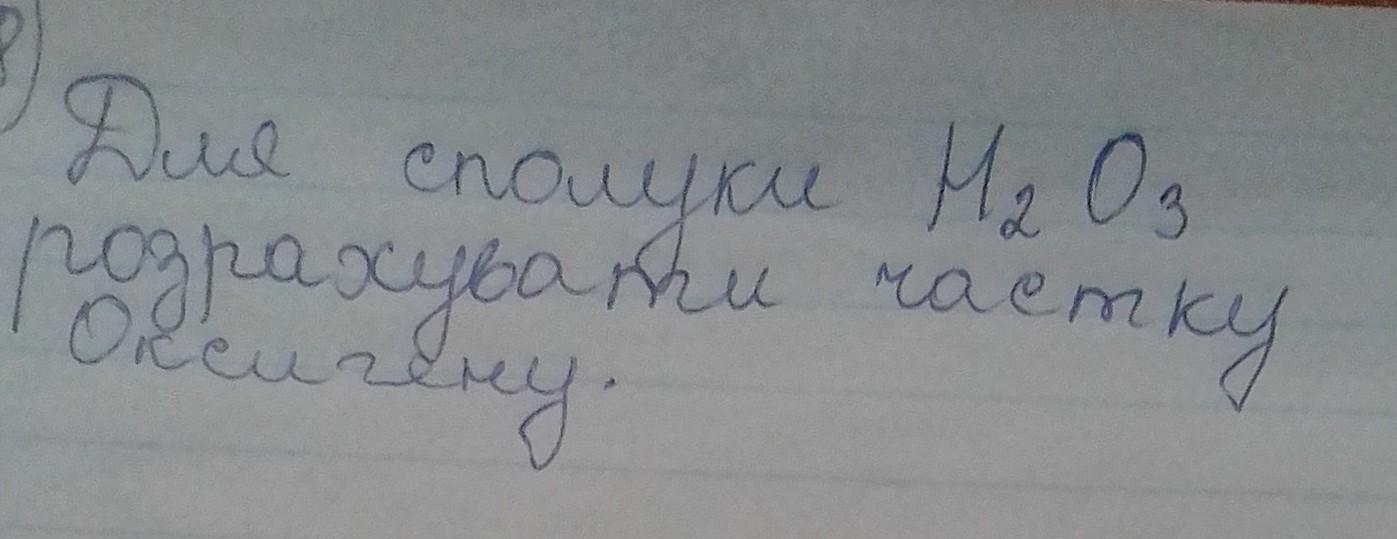 Для сполуки H₂O₃
розрахувати частку
Оксигену.